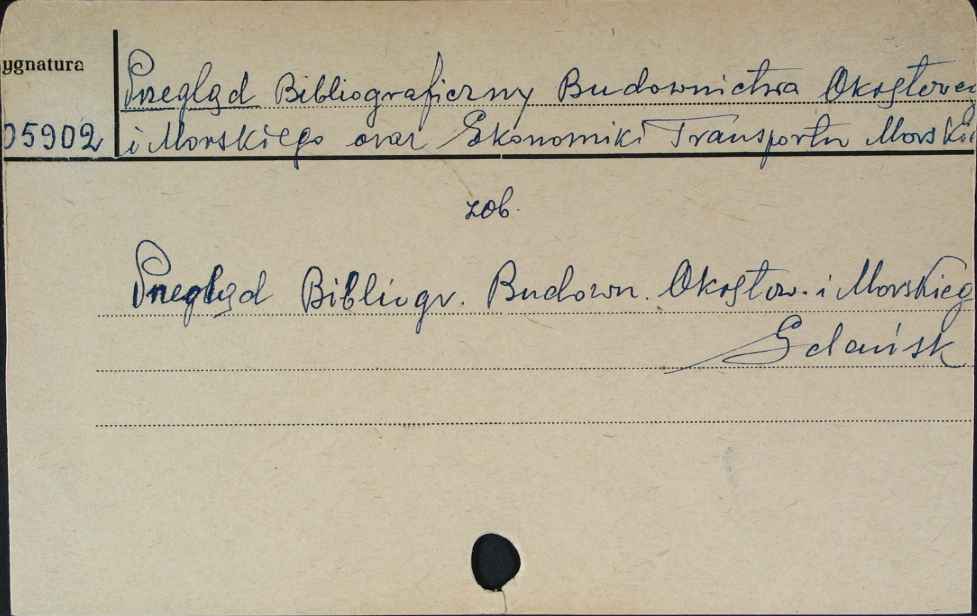 ygnatura
Przegląd Bibliograficzny Budownictwa Okrętowe
05902 i Morskiego oraz Ekonomiki Transportu Morskie
zob.
Przegląd Bibliogr. Budown. Okrętow. i Morskieg
Gdańsk